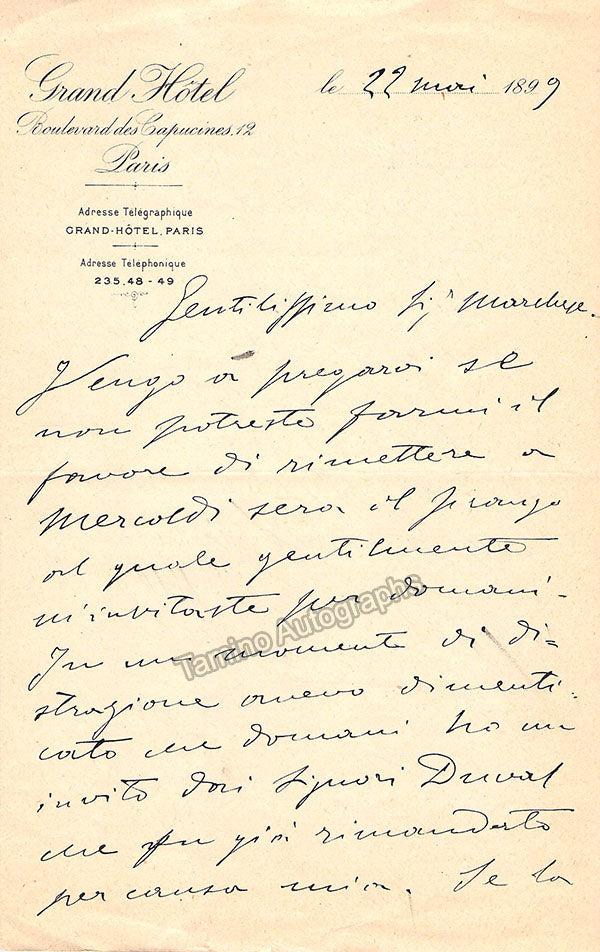 Grand Hôtel
Boulevard des Capucines, 12
Paris
Adresse Télégraphique
GRAND-HÔTEL, PARIS
Adresse Téléphonique
235,48 - 49
le 22 mai 1899
Gentilissimo Sigr Marchese.
Vengo a pregarvi se
non potreste farmi il
favore di rimettere a
Mercoldi sera il pranzo
al quale gentilmente
m'invitaste per domani -
In un momento di di=
strazione avevo dimenti-
cato che domani ho un
invito dai Signori Duval
che fu già rimandato
per causa mia. Se la
Tamino Autographs